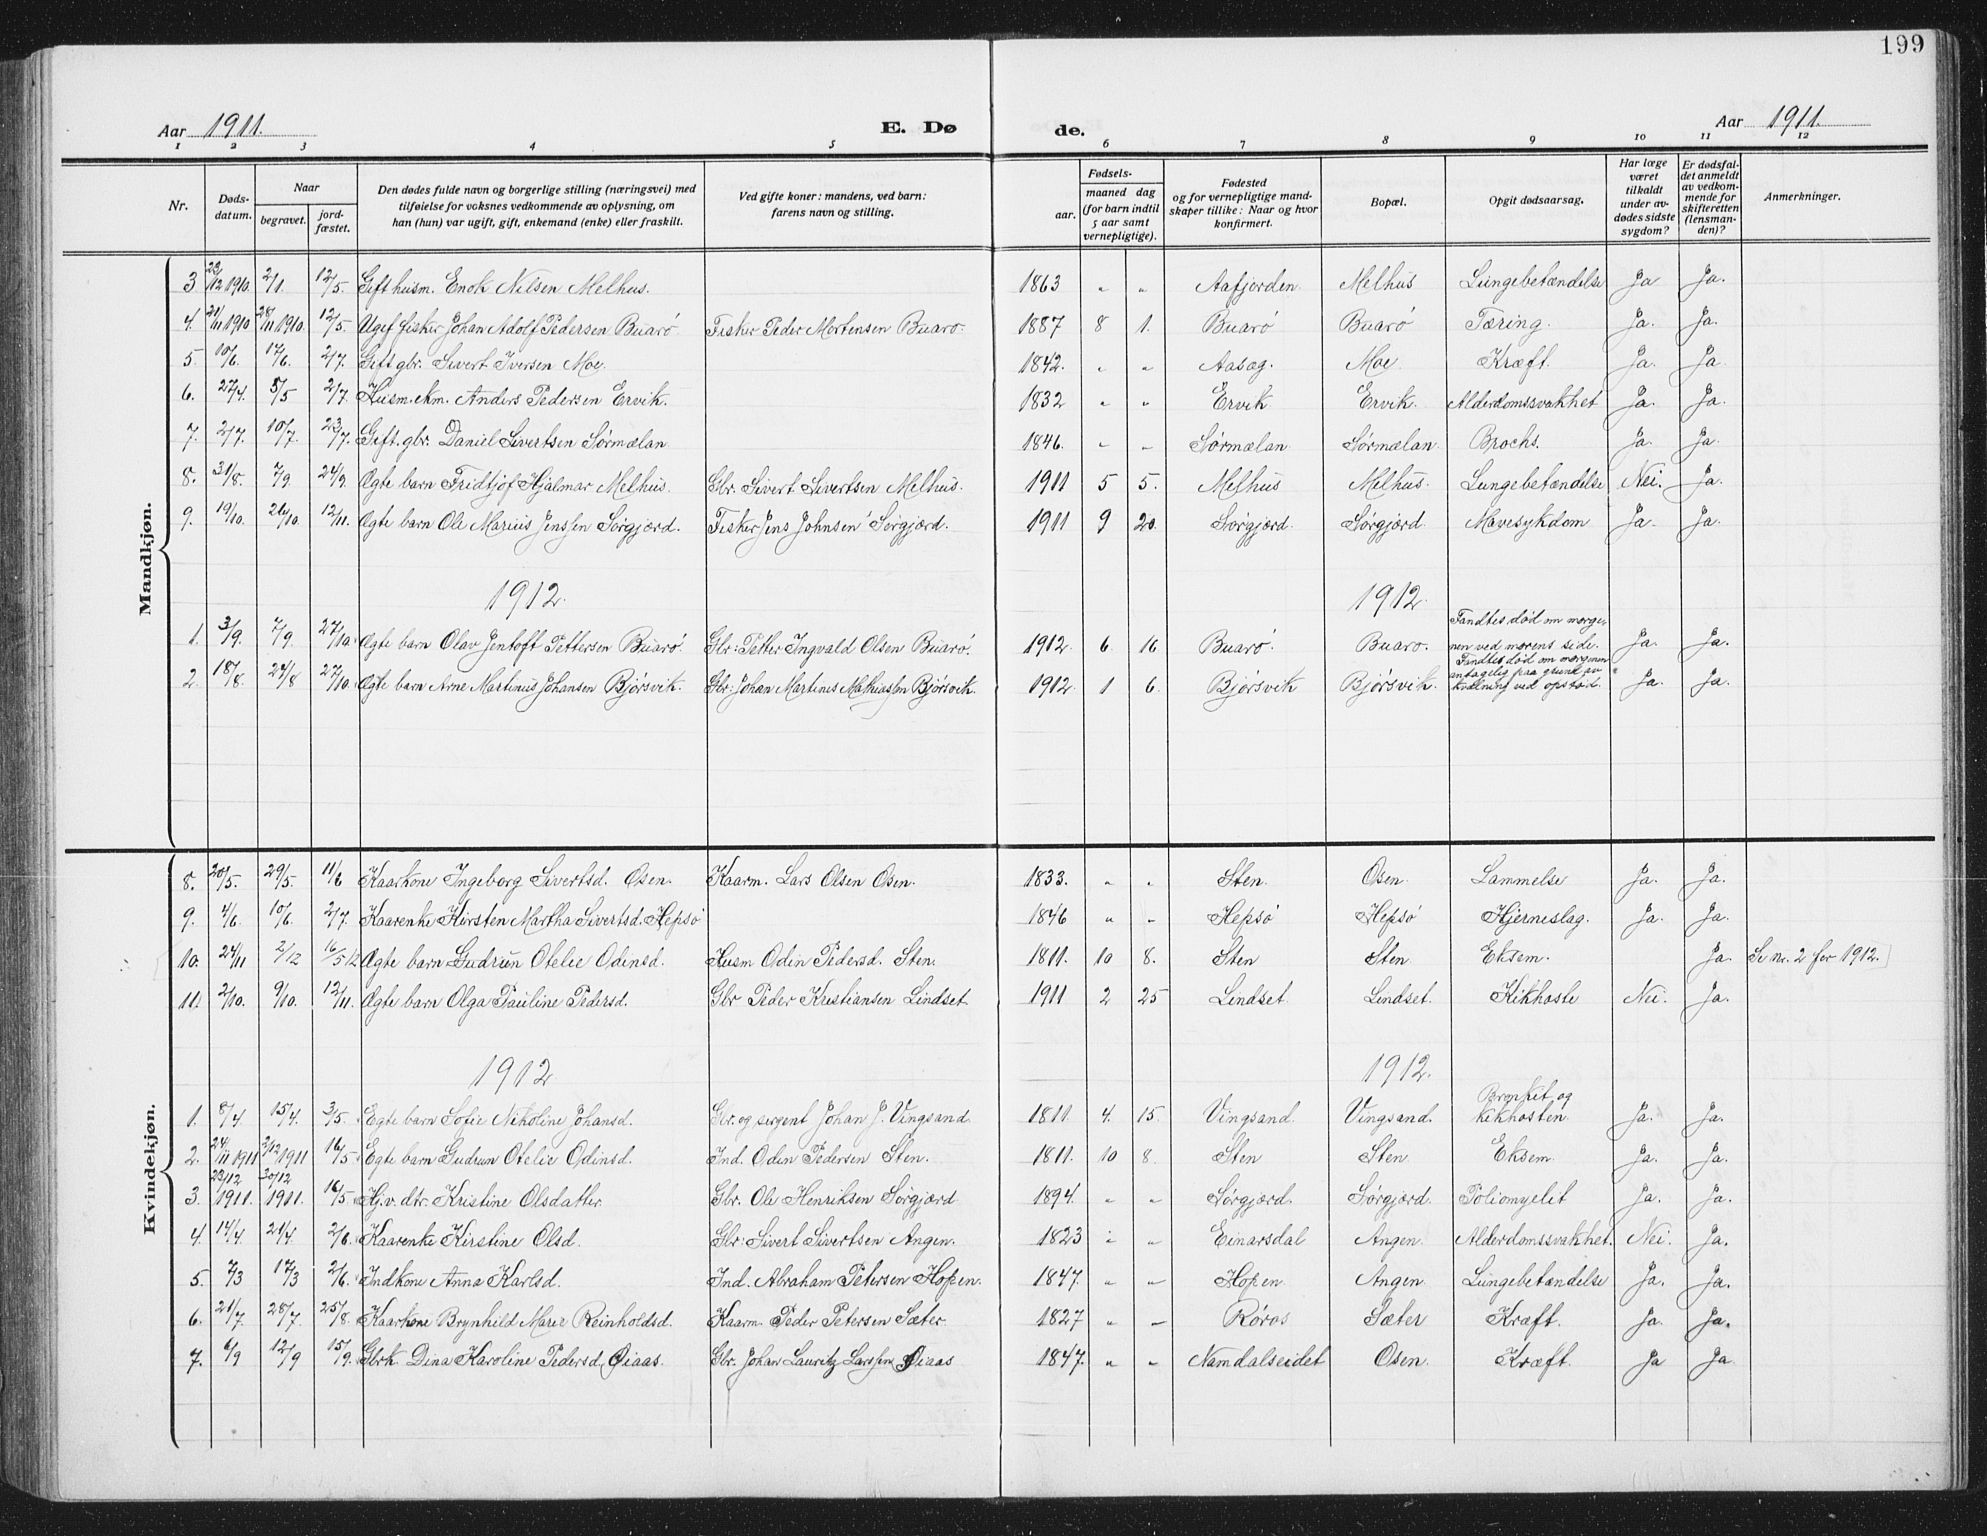 199
Aar 1911. E. Dø de. Aar 1911.
1 2 3 4 5 6 7 8 9 10 11 12
Nr. Døds-datum. Naar begravet. jord-fæstet. Den dødes fulde navn og borgerlige stilling (næringsvei) med tilføielse for voksnes vedkommende av oplysning, om han (hun) var ugift, gift, enkemand (enke) eller fraskilt. Ved gifte koner: mandens, ved barn: farens navn og stilling. Fødsels- aar. maaned dag (for barn indtil 5 aar samt vernepligtige). Fødested og for vernepligtige mand-skaper tillike: Naar og hvor konfirmert. Bopæl. Opgit dødsaarsag. Har læge været tilkaldt under av-dødes sidste sygdom? Er dødsfal-det anmeldt av vedkom-mende for skifteretten (lensman-den)? Anmerkninger.
Mandkjøn.
3 22/12 1910. 2/1. 12/5. Gift husm. Enok Nilsen Melhus. 1863 " " Aafjorden Melhus Lungebetændelse Ja Ja.
4. 21/11 1910 28/11 1910. 12/5. Ugif fisker Johan Adolf Pedersen Buarø Fisker Peder Mortensen Buarø. 1887 8 1. Buarø Buarø Tæring. Ja. Ja.
5. 10/6. 17/6. 2/7. Gift gbr. Sivert Iversen Moe. 1842. " " Aasag. Moe. Kræft. Ja. Ja.
6. 27/4. 5/5 2/7. Husm. ekm. Anders Pedersen Ervik. 1832 " " Ervik Ervik. Alderdomssvakhet Ja. Ja.
7. 2/7. 10/7. 23/7. Gift. gbr. Daniel Sivertsen Sørmælan. 1846. " " Sørmælan Sørmælan. Brochs. Ja. Ja.
8. 31/8. 7/9. 24/9. Ægte barn Fridtjof Hjalmar Melhus. Gbr. Sivert Sivertsen Melhus. 1911 5 5. Melhus Melhus. Lungebetændelse Nei. Ja.
9. 19/10. 26/10. 12/11. Ægte barn Ole Marius Jenssen Sørgjærd. Fisker Jens Johnsen Sørgjærd. 1911 9 20. Sørgjærd. Sørgjærd Mavesykdom Ja. Ja.
1912. 1912.
1. 3/9. 7/9. 27/10. Ægte barn Olav Jentoft Pettersen Buarø. Gbr: Petter Ingvald Olsen Buarø. 1912. 6 16 Buarø. Buarø. Fandtes død om morge-nen ved morens side. Ja. Ja.
2. 18/8. 24/8 27/10. Ægte barn Arne Martinus Johansen Bjørsvik. Gbr: Johan Martinus Mathiassen Bjørsvik. 1912. 1 6. Bjørsvik Bjørsvik. Fandtes død om morgenen antagelig paa grund av kvælning ved opstød. Ja. Ja.
Kvindekjøn.
8. 20/5. 29/5. 11/6 Kaarkone Ingeborg Sivertsd. Osen. Kaarm. Lars Olsen Osen. 1833. " " Sten. Osen. Lammelse Ja. Ja.
9. 4/6. 10/6. 2/7. Kaarenke Kirsten Martha Sivertsd. Hepsø 1846 " " Hepsø Hepsø Hjerneslag. Ja. Ja.
10. 24/11 2/12 16/5 12 Ægte barn Gudrun Otelie Odinsd. Husm Odin Pedersd. Sten. 1811. 10 8. Sten Sten. Eksem. Ja. Se nr. 2 for 1912.
11. 2/10. 9/10. 12/11. Ægte barn Olga Pauline Pedersd. Gbr Peder Kristiansen Lindset. 1911 2 25 Lindset. Lindset. Kikhoste Nei. Ja.
1912 1912.
1. 8/4 15/4. 3/5. Egte barn Sofie Nikoline Johansd. Gbr. og sergent Johan J. Vingsand. 1811. 4. 15. Vingsand. Vingsand. Bronkit og kikhosten Ja. Ja.
2. 24/11 1911 2/12 1911 16/5 Egte barn Gudrun Otelie Odinsd. Ind. Odin Pedersen Sten. 1811. 10 8. Sten Sten. Eksem. Ja. Ja.
3. 23/12 1911. 30/12 1911. 16/5 Hj.v. dtr. Kristine Olsdatter. Gbr. Ole Henriksen Sørgjærd 1894. " " Sørgjærd. Sørgjærd. Poliomyelit Ja. Ja.
4. 14/4. 21/4. 2/6. Kaarenke Kirstine Olsd. Gbr: Sivert Sivertsen Angen. 1823 " " Einarsdal Angen. Alderdomssvakhet. Nei. Ja.
5. 7/3 17/3 2/6. Indkone Anna Karlsd. Ind. Abraham Petersen Hopen. 1847. " " Hopen Angen. Lungebetændelse Ja. Ja.
6. 21/7. 28/7. 25/8. Kaarkone Brynhild Marie Reinholdsd. Kaarm. Peder Petersen Sæter. 1827 " " Røros Sæter Kræft. Ja. Ja.
7. 6/9 12/9 15/9. Gbrk. Dina Karoline Pedersd. Øiaas. Gbr. Johan Lauritz Larssen Øiaas 1847. " " Namdalseidet Osen. Kræft. Ja Ja.